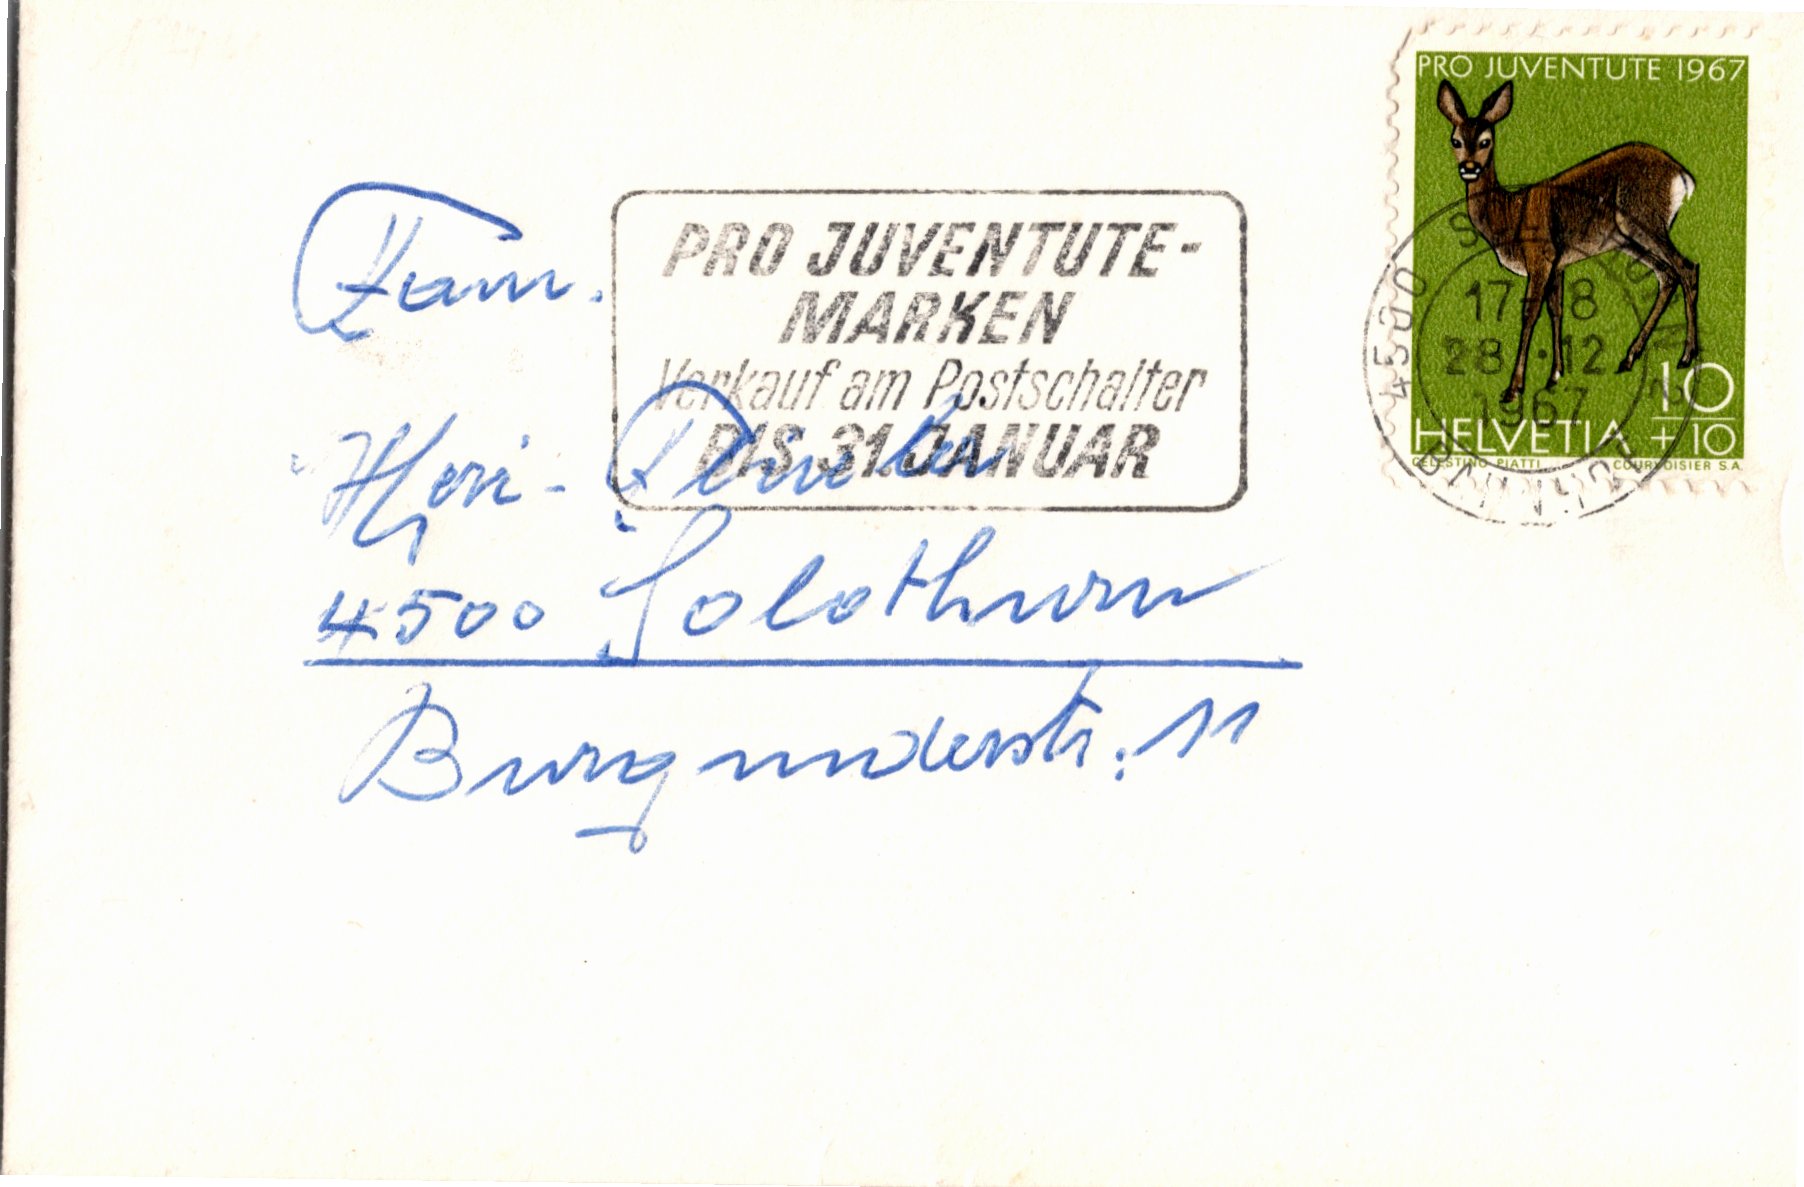 PRO JUVENTUTE 1967
PRO JUVENTUTE-
MARKEN
Verkauf am Postschalter
BIS 31. JANUAR
4500
17-18
28.12
1967
10
+10
HELVETIA
CELESTINO PIATTI
COURVOISIER S.A.
Fam.
4500 Solothurn
Burgunderstr. 11